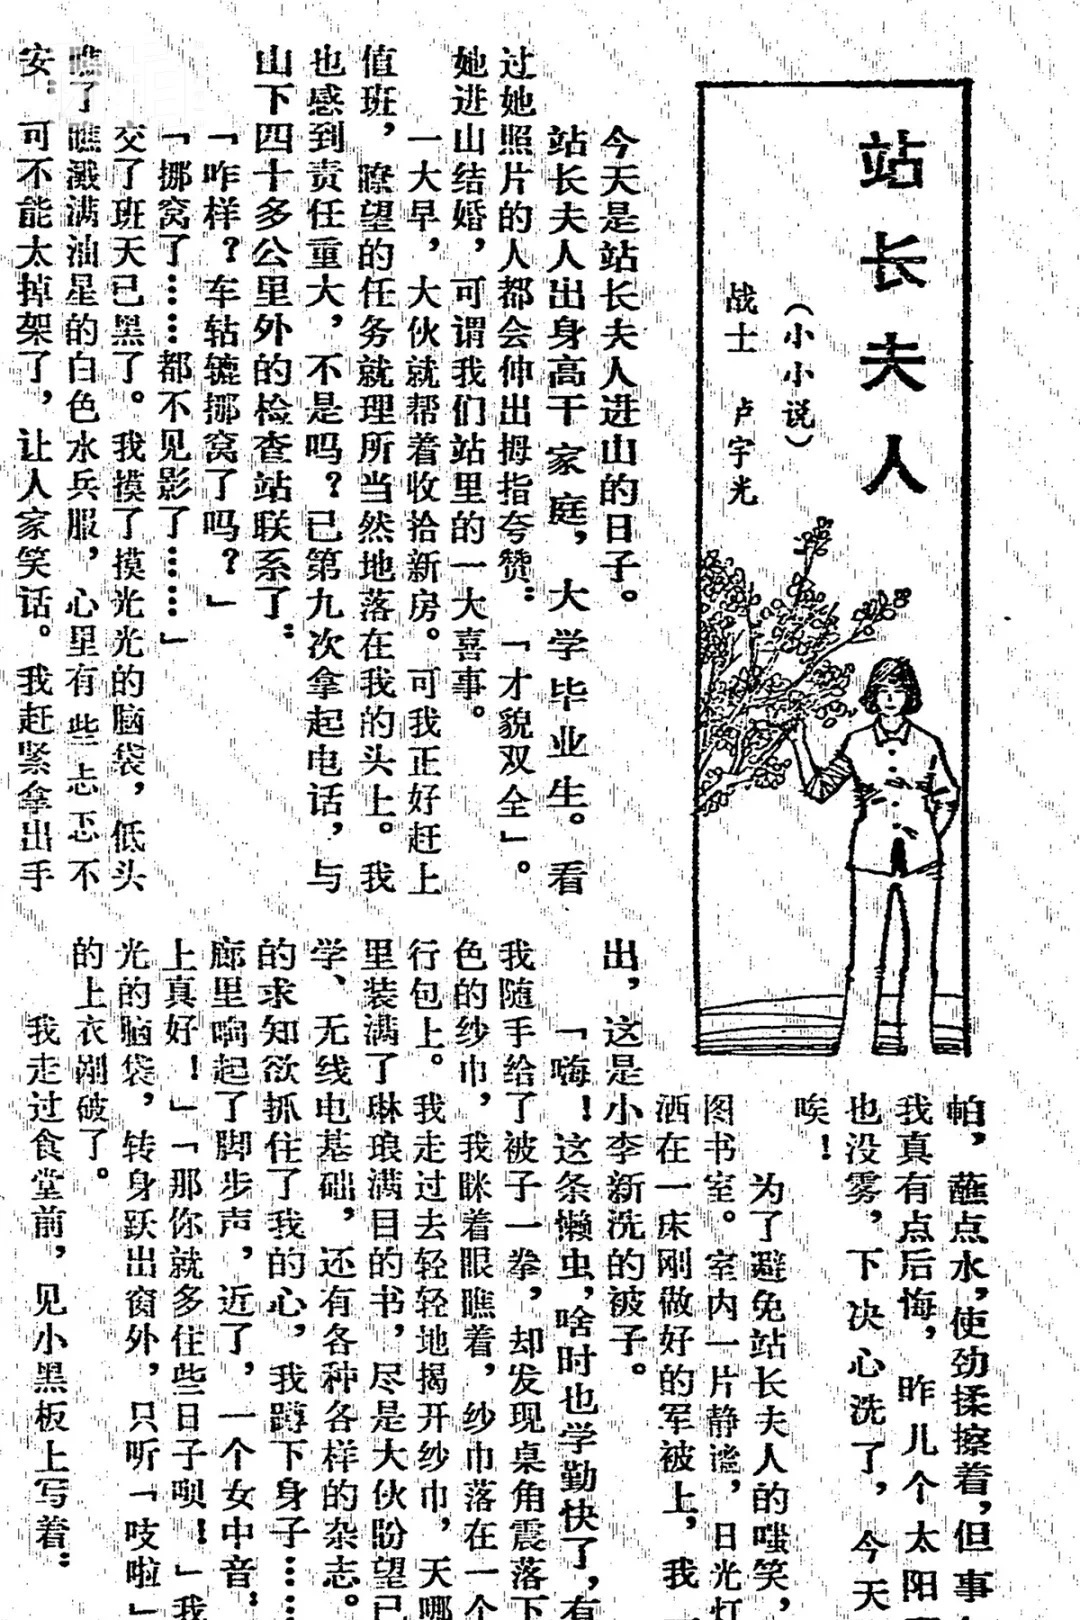 站长夫人
（小小说）
战士 卢宇光
今天是站长夫人进山的日子。
站长夫人出身高干家庭，大学毕业生。看
过她照片的人都会伸出拇指夸赞：「才貌双全」。
她进山结婚，可谓我们站里的一大喜事。
一大早，大伙就帮着收拾新房。可我正好赶上
值班，瞭望的任务就理所当然地落在我的头上。我
也感到责任重大，不是吗？已第九次拿起电话，与
山下四十多公里外的检查站联系了：
「咋样？车轱辘挪窝了吗？」
「挪窝了……都不见影了……」
交了班天已黑了。我摸了摸光光的脑袋，低头
瞧了瞧溅满油星的白色水兵服，心里有些忐忑不
安：可不能太掉架了，让人家笑话。我赶紧拿出手
帕，蘸点水，使劲揉擦着，但事
我真有点后悔，昨儿个太阳
也没雾，下决心洗了，今天
唉！
为了避免站长夫人的嗤笑，
图书室。室内一片静谧，日光灯
洒在一床刚做好的军被上，我
出，这是小李新洗的被子。
「嗨！这条懒虫，啥时也学勤快了，有
我随手给了被子一拳，却发现桌角震落下
色的纱巾，我眯着眼瞧着，纱巾落在一个
行包上。我走过去轻轻地揭开纱巾，天哪
里装满了琳琅满目的书，尽是大伙盼望已
学、无线电基础，还有各种各样的杂志。
的求知欲抓住了我的心，我蹲下身子……
廊里响起了脚步声，近了，一个女中音，
上真好！」「那你就多住些日子呗！」我
光的脑袋，转身跃出窗外，只听「吱啦」
的上衣剐破了。
我走过食堂前，见小黑板上写着：